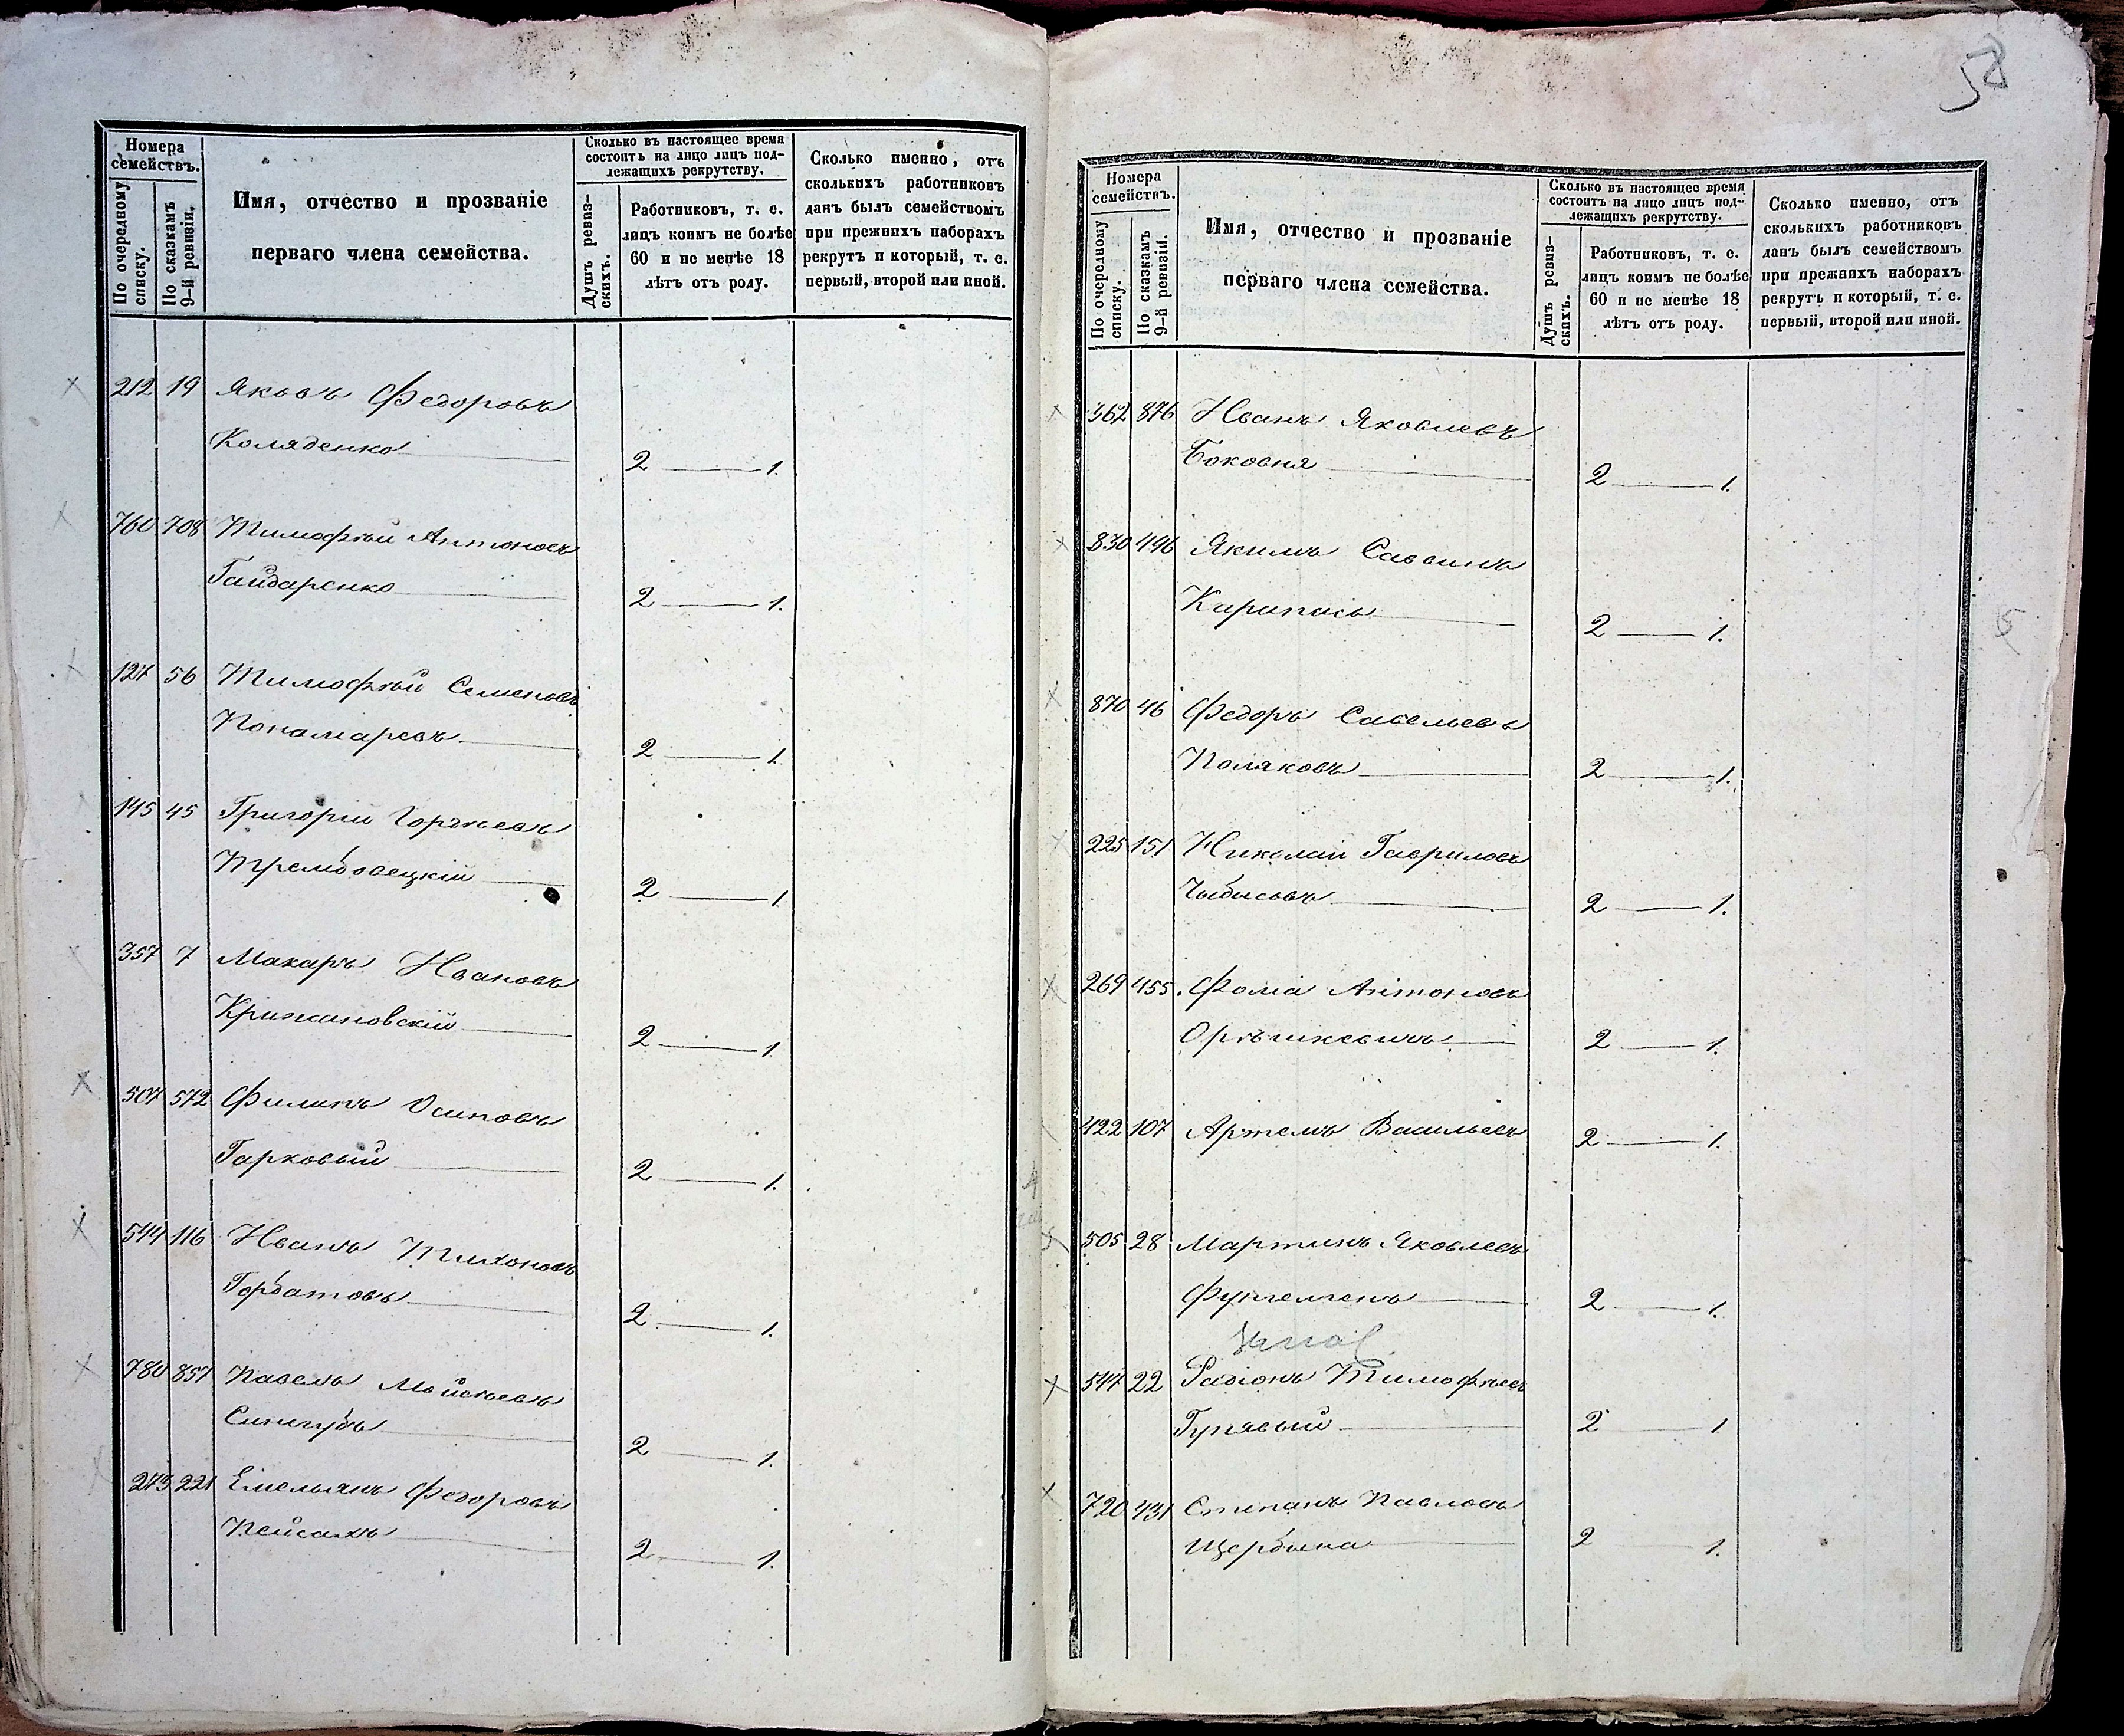 Номера
семействъ.
По очередному
списку.
По сказкамъ
9-й ревизіи.
Имя, отчество и прозваніе
перваго члена семейства.
Сколько въ настоящее время
состоитъ на лицо лицъ под-
лежащихъ рекрутству.
Душъ ревиз-
скихъ.
Работниковъ, т. е.
лицъ коимъ не болѣе
60 и не менѣе 18
лѣтъ отъ роду.
Сколько именно, отъ
сколькихъ работниковъ
данъ былъ семействомъ
при прежнихъ наборахъ
рекрутъ и который, т. е.
первый, второй или иной.
212 19 Яковъ Федоровъ
Коляденко 2 — 1.
760 708 Тимофѣй Антоновъ
Гайдаренко 2 — 1.
127 56 Тимофѣй Семеновъ
Понамаревъ 2 — 1.
145 45 Григорій Гордѣевъ
Трембовецкій 2 — 1.
357 7 Макаръ Ивановъ
Крижановскій 2 — 1.
507 572 Филипъ Осиповъ
Гарковый 2 — 1.
544 116 Иванъ Тихоновъ
Горбатовъ 2 — 1.
780 857 Павелъ Мойсѣевъ
Синегубъ 2 — 1.
273 221 Емельянъ Федоровъ
Пейсахъ 2 — 1.
58
Номера
семействъ.
По очередному
списку.
По сказкамъ
9-й ревизіи.
Имя, отчество и прозваніе
перваго члена семейства.
Сколько въ настоящее время
состоитъ на лицо лицъ под-
лежащихъ рекрутству.
Душъ ревиз-
скихъ.
Работниковъ, т. е.
лицъ коимъ не болѣе
60 и не менѣе 18
лѣтъ отъ роду.
Сколько именно, отъ
сколькихъ работниковъ
данъ былъ семействомъ
при прежнихъ наборахъ
рекрутъ и который, т. е.
первый, второй или иной.
362 876 Иванъ Яковлевъ
Боковня 2 — 1.
830 496 Якимъ Саввинъ
Карпась 2 — 1.
870 46 Федоръ Савельевъ
Поляковъ 2 — 1.
225 151 Николай Гавриловъ
Чибисовъ 2 — 1.
269 455 Фома Антоновъ
Орѣшкевичъ 2 — 1.
422 107 Артемъ Васильевъ 2 — 1.
505 28 Мартинъ Яковлевъ
2 — 1.
547 22 Радіонъ Тимофѣевъ
Гунявый 2 1
720 431 Степанъ Павловъ
Щербина 2 1.